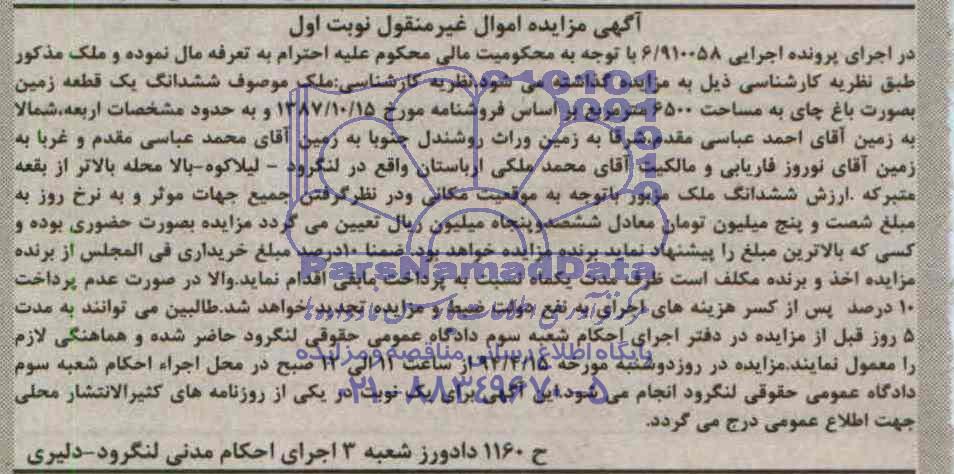 آگهی مزایده اموال غیرمنقول نوبت اول
در اجرای پرونده اجرایی ۶/۹۱۰۰۵۸ با توجه به محکومیت مالی محکوم علیه احترام به تعرفه مال نموده و ملک مذکور
طبق نظریه کارشناسی ذیل به مزایده گذاشته می شود.نظریه کارشناسی:ملک موصوف ششدانگ یک قطعه زمین
بصورت باغ چای به مساحت ۶۵۰۰ مترمربع بر اساس فروشنامه مورخ ۱۳۸۷/۱۰/۱۵ و به حدود مشخصات اربعه،شمالا
به زمین آقای احمد عباسی مقدم،شرقا به زمین وراث روشندل جنوبا به زمین آقای محمد عباسی مقدم و غربا به
زمین آقای نوروز فاریابی و مالکیت آقای محمد ملکی ارباستان واقع در لنگرود - لیلاکوه-بالا محله بالاتر از بقعه
متبرکه .ارزش ششدانگ ملک مزبور باتوجه به موقعیت مکانی ودر نظرگرفتن جمیع جهات موثر و به نرخ روز به
مبلغ شصت و پنج میلیون تومان معادل ششصدوپنجاه میلیون ریال تعیین می گردد مزایده بصورت حضوری بوده و
کسی که بالاترین مبلغ را پیشنهاد نماید برنده مزایده خواهد بود.ضمنا ۱۰درصد مبلغ خریداری فی المجلس از برنده
مزایده اخذ و برنده مکلف است ظرف مدت یکماه نسبت به پرداخت مابقی اقدام نماید.والا در صورت عدم پرداخت
۱۰ درصد پس از کسر هزینه های اجرای به نفع دولت ضبط و مزایده تجدید خواهد شد.طالبین می توانند به مدت
۵ روز قبل از مزایده در دفتر اجرای احکام شعبه سوم دادگاه عمومی حقوقی لنگرود حاضر شده و هماهنگی لازم
را معمول نمایند.مزایده در روزدوشنبه مورخه ۹۳/۴/۱۵ از ساعت ۱۱ الی ۱۲ صبح در محل اجراء احکام شعبه سوم
دادگاه عمومی حقوقی لنگرود انجام می شود.این آگهی برای یک نوبت در یکی از روزنامه های کثیرالانتشار محلی
جهت اطلاع عمومی درج می گردد.
ح ۱۱۶۰ دادورز شعبه ۳ اجرای احکام مدنی لنگرود-دلیری
ParsNamadData
پایگاه اطلاع رسانی مناقصه و مزایده
۰۲۱-۸۸۳۴۹۶۷۰-۵